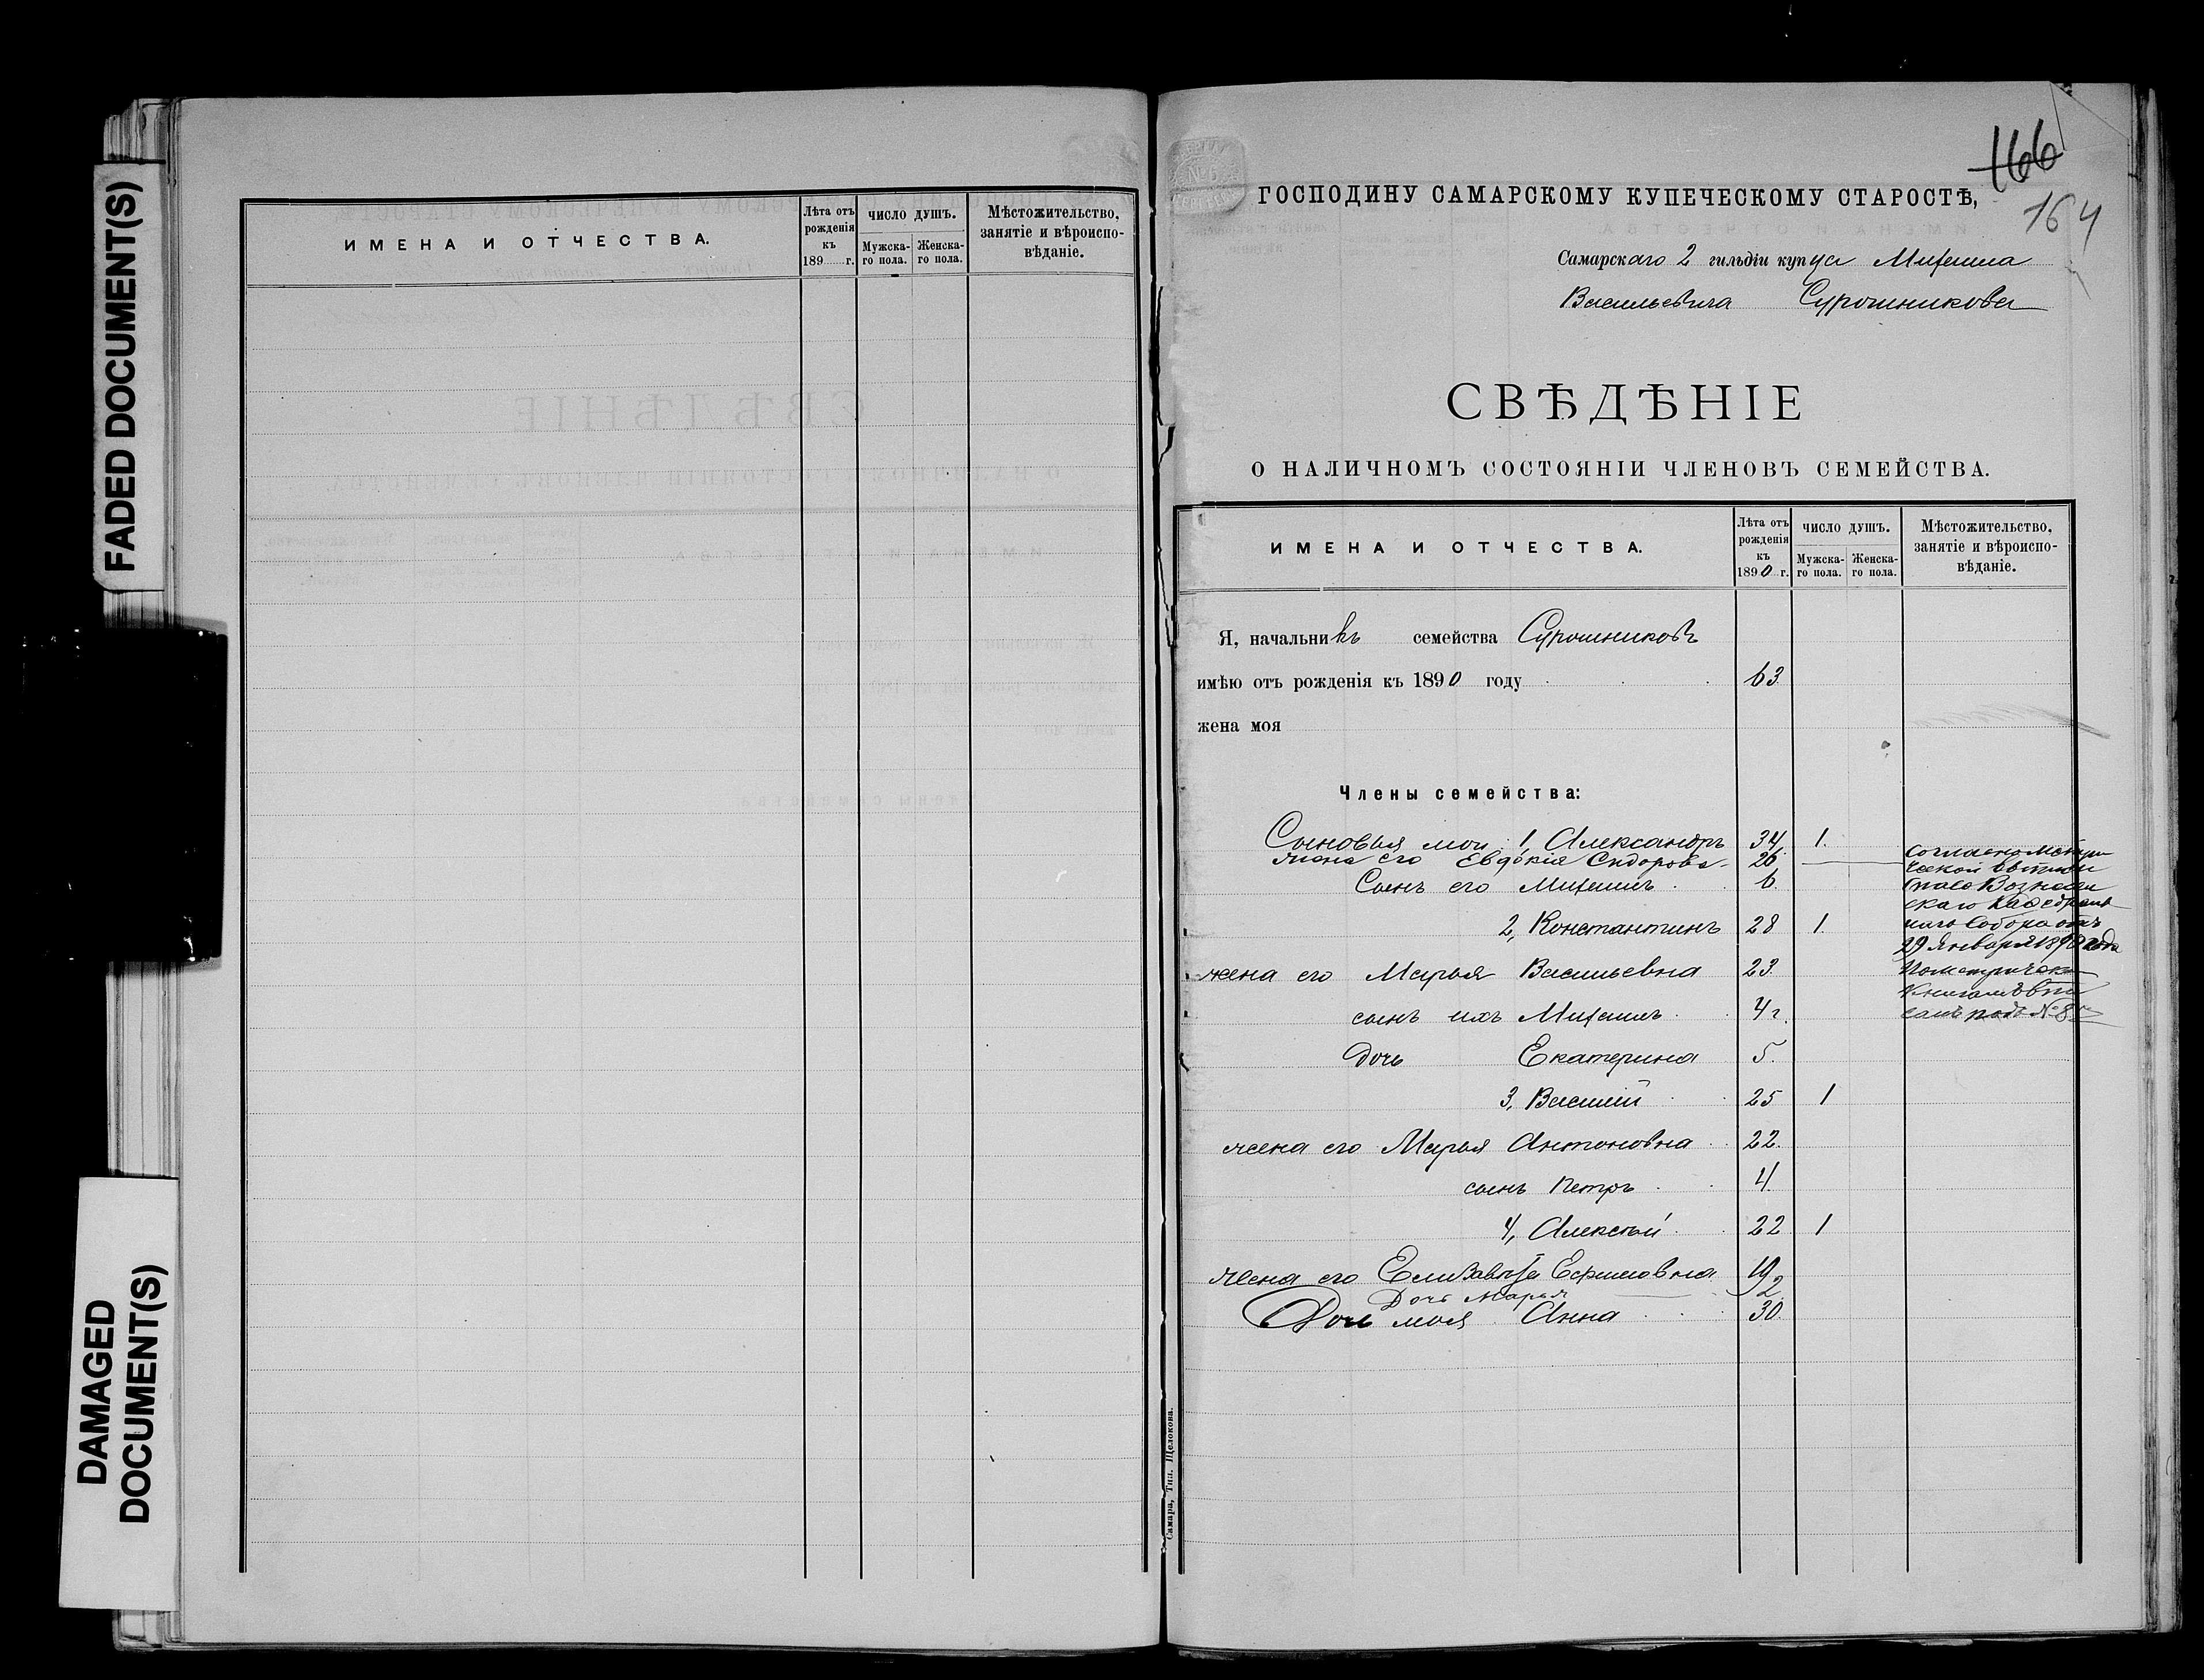 FADED DOCUMENT(S)
DAMAGED
DOCUMENT(S)
ИМЕНА И ОТЧЕСТВА.
Лѣта отъ рожденія къ 189 г.
ЧИСЛО ДУШЪ.
Мужска-го пола.
Женска-го пола.
Мѣстожительство, занятіе и вѣроиспо-вѣданіе.
166
164
ГОСПОДИНУ САМАРСКОМУ КУПЕЧЕСКОМУ СТАРОСТѢ,
Самарскаго 2 гильдіи купца Михаила
Васильевича Сурошникова
СВѢДѢНІЕ
О НАЛИЧНОМЪ СОСТОЯНІИ ЧЛЕНОВЪ СЕМЕЙСТВА.
ИМЕНА И ОТЧЕСТВА.
Лѣта отъ рожденія къ 1890 г.
ЧИСЛО ДУШЪ.
Мужска-го пола.
Женска-го пола.
Мѣстожительство, занятіе и вѣроиспо-вѣданіе.
Я, начальникъ семейства Сурошниковъ
имѣю отъ рожденія къ 1890 году 63
жена моя
Члены семейства:
Сыновья мои: 1, Александръ 34 1.
жена его Евдокія Сидорова 26
Сынъ его Михаилъ 6
2, Константинъ 28 1.
жена его Марья Васильевна 23
сынъ ихъ Михаилъ 4 г.
Дочь Екатерина 5.
3, Василій 25 1
жена его Марья Антоновна 22.
сынъ Петръ 4.
4, Алексѣй 22 1
жена его Елизавета Ефимовна 19
Дочь Марья 2
Дочь моя Анна 30.
Согласно Метри
ческой
Вознесен
скаго Кафедраль
наго Собора отъ
29 Января 1890 года
По метрическ
книгамъ впи
санъ подъ № 8
Самара, Тип. Щелокова.